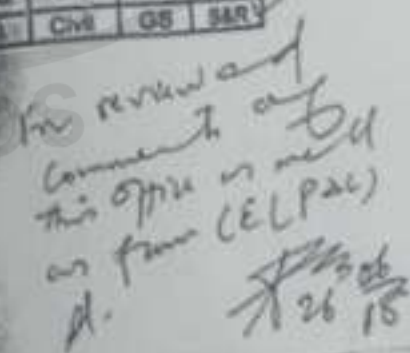 Civil GS S&R
For review and
comments of
this office as well
as from (ELP&C)
pl.
26/06/18